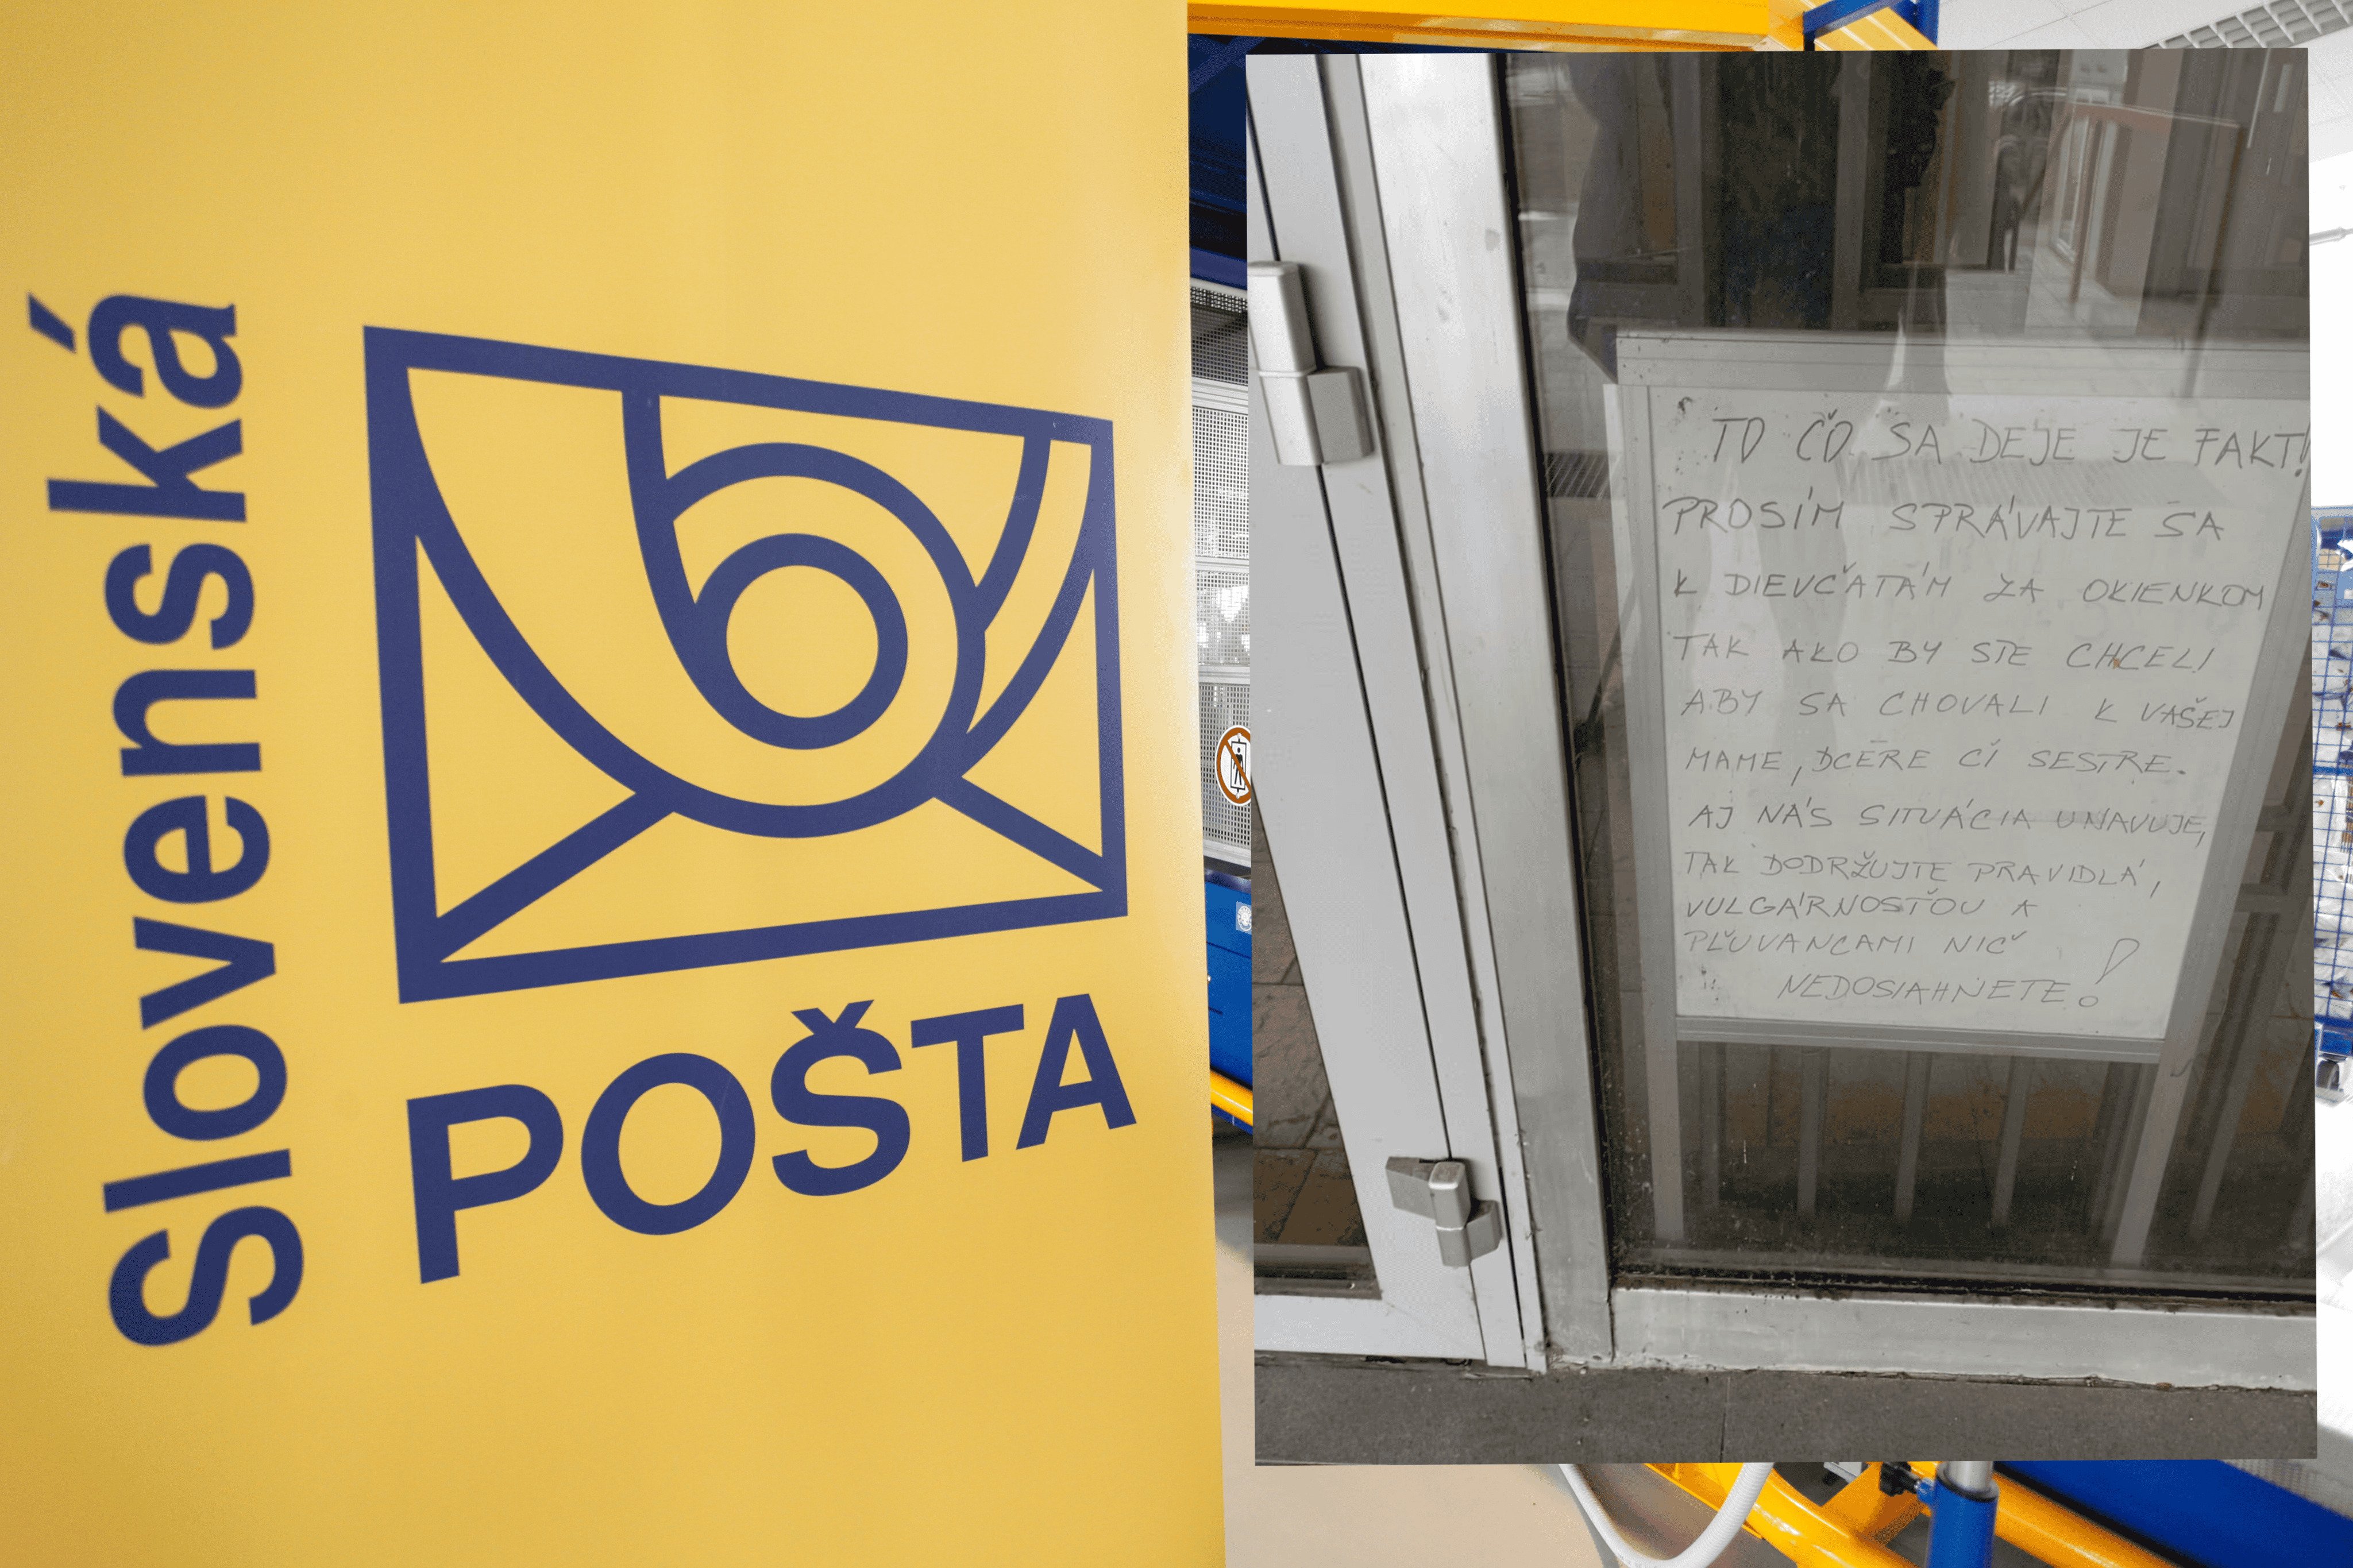 Slovenská
POŠTA
TO ČO SA DEJE JE FAKT!
PROSÍM SPRÁVAJTE SA
K DIEVČATÁM ZA OKIENKOM
TAK AKO BY STE CHCELI
ABY SA CHOVALI K VAŠEJ
MAME, DCÉRE ČI SESTRE.
AJ NÁS SITUÁCIA UNAVUJE,
TAK DODRŽUJTE PRAVIDLÁ,
VULGÁRNOSŤOU A
PĽUVANCAMI NIČ
NEDOSIAHNETE!